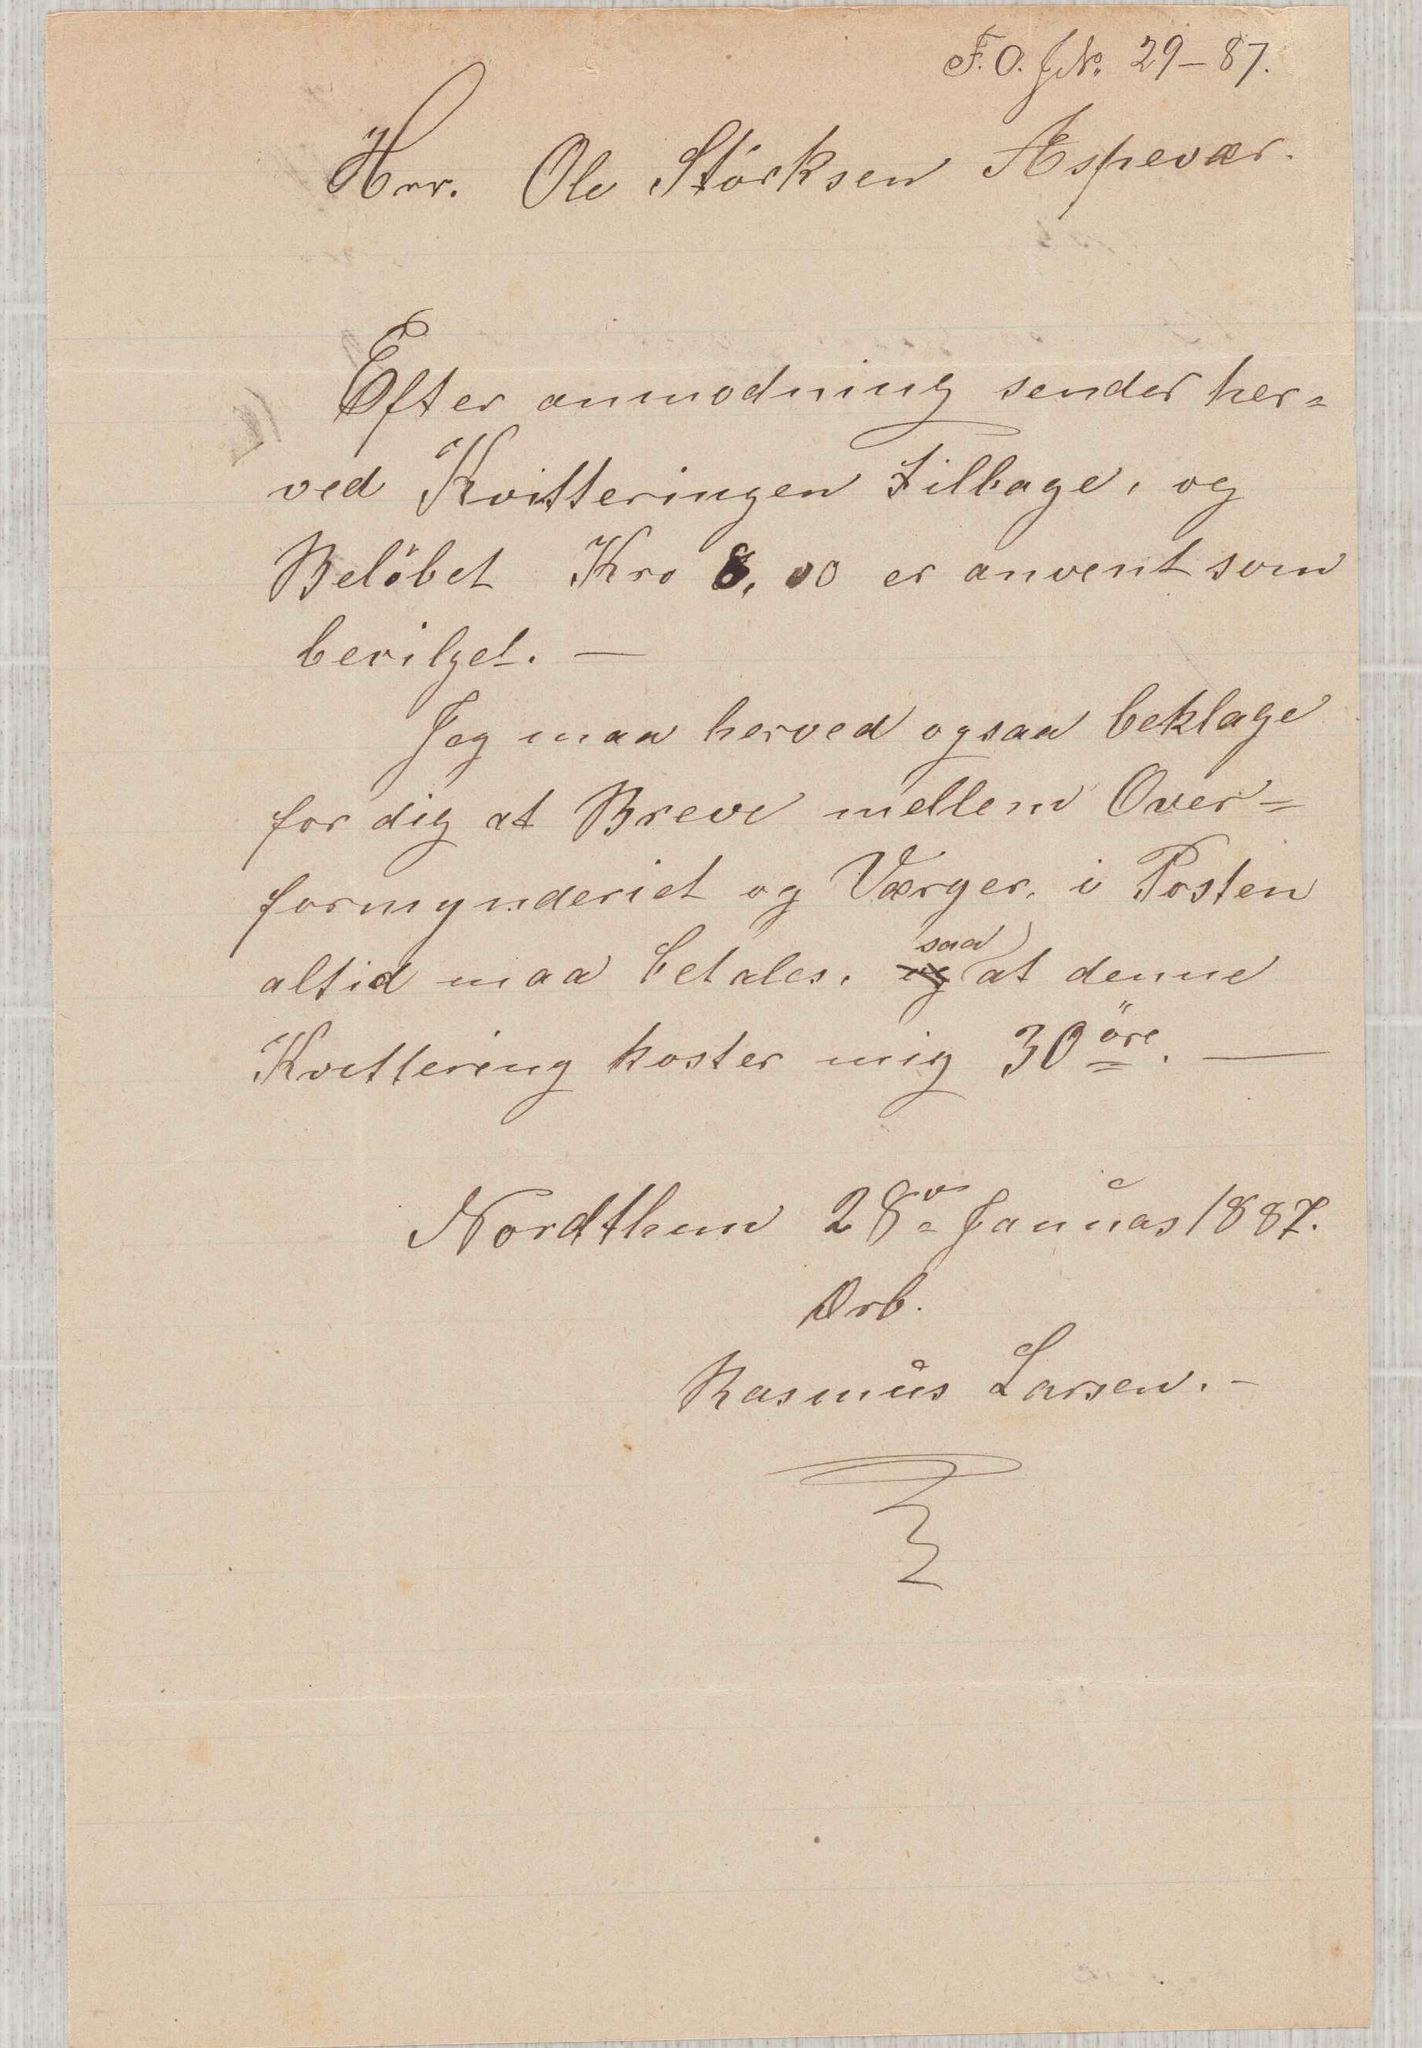 F. O. J.No. 29-87.
Hrr. Ole Störksen Espevær.
Efter anmodning sender her=
ved Kvitteringen tilbage, og
Belöbet Kro 8,00 er anvent som
bevilget. —
Jeg maa herved ogsaa beklage
for dig at Breve mellem Over=
formynderiet og Værger, i Posten
altid maa betales, og saa at denne
Kvittering koster mig 30 öre. —
Nordthun 28 Januar 1887.
Ærb.
Rasmus Larsen. -